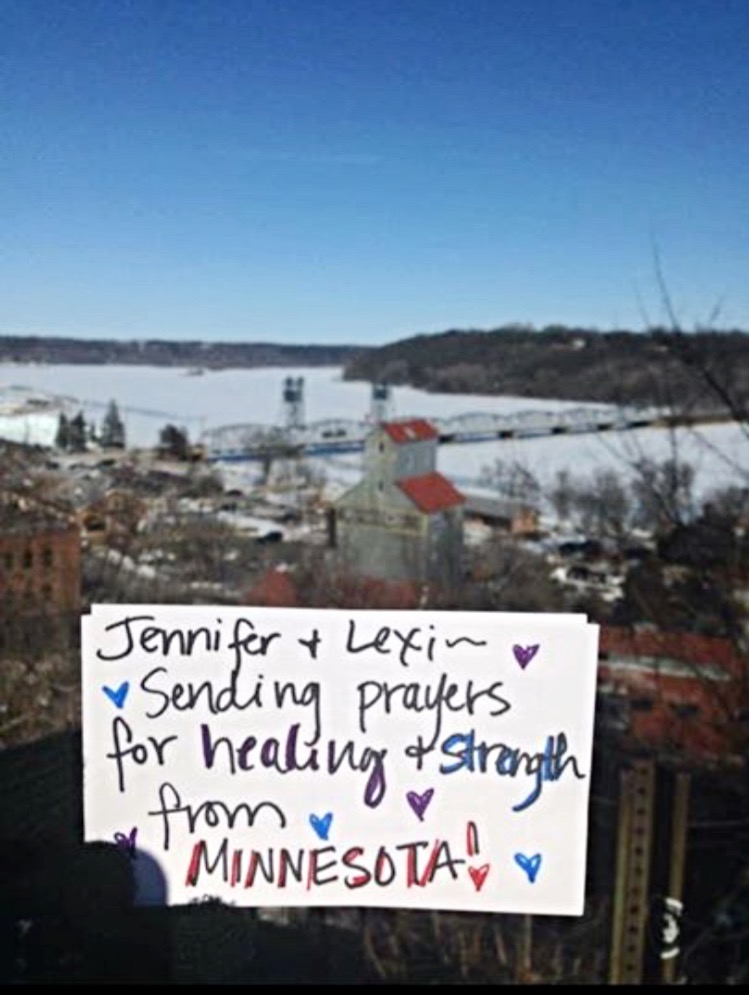 Jennifer + Lexi~
Sending prayers
for healing + strength
from
MINNESOTA!